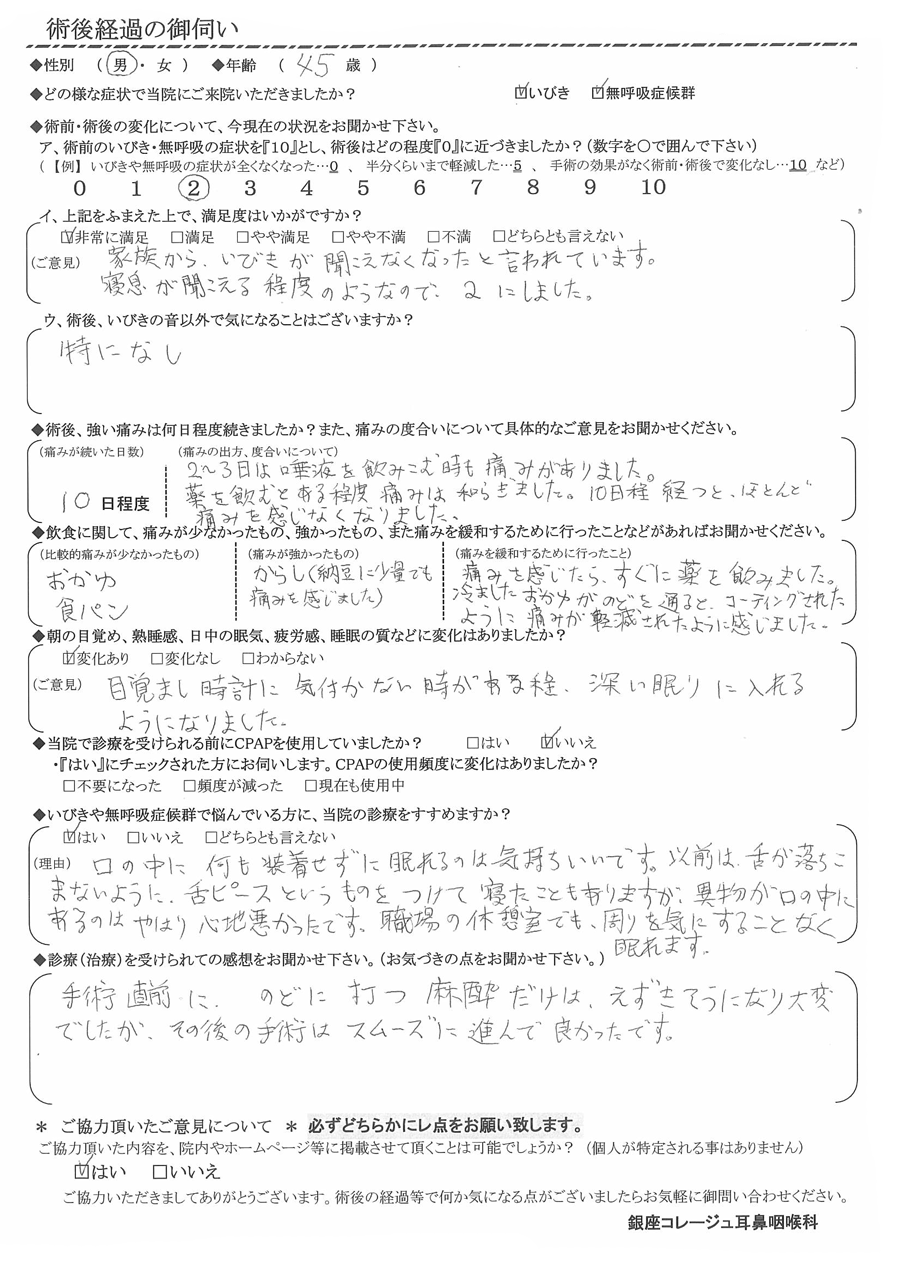 術後経過の御伺い
◆性別　（ 男 ・ 女 ）　◆年齢　（ 45 歳 ）
◆どの様な症状で当院にご来院いただきましたか？　☑いびき　☑無呼吸症候群
◆術前・術後の変化について、今現在の状況をお聞かせ下さい。
ア、術前のいびき・無呼吸の症状を『10』とし、術後はどの程度『0』に近づきましたか？（数字を○で囲んで下さい）
（【例】 いびきや無呼吸の症状が全くなくなった…0　、　半分くらいまで軽減した…5　、　手術の効果がなく術前・術後で変化なし…10 など）
0　1　2　3　4　5　6　7　8　9　10
イ、上記をふまえた上で、満足度はいかがですか？
☑非常に満足　□満足　□やや満足　□やや不満　□不満　□どちらとも言えない
（ご意見）　家族から、いびきが聞こえなくなったと言われています。
寝息が聞こえる程度のようなので、2にしました。
ウ、術後、いびきの音以外で気になることはございますか？
特になし
◆術後、強い痛みは何日程度続きましたか？また、痛みの度合いについて具体的なご意見をお聞かせください。
（痛みが続いた日数）　（痛みの出方、度合いについて）
2〜3日は唾液を飲みこむ時も痛みがありました。
10 日程度　薬を飲むとある程度痛みは和らぎました。10日程経つと、ほとんど
痛みを感じなくなりました。
◆飲食に関して、痛みが少なかったもの、強かったもの、また痛みを緩和するために行ったことなどがあればお聞かせください。
（比較的痛みが少なかったもの）　（痛みが強かったもの）　（痛みを緩和するために行ったこと）
おかゆ　からし（納豆に少量でも　痛みを感じたら、すぐに薬を飲みました。
食パン　痛みを感じました）　冷ましたおかゆがのどを通ると、コーティングされた
ように痛みが軽減されたように感じました。
◆朝の目覚め、熟睡感、日中の眠気、疲労感、睡眠の質などに変化はありましたか？
☑変化あり　□変化なし　□わからない
（ご意見）　目覚まし時計に気付かない時がある程、深い眠りに入れる
ようになりました。
◆当院で診療を受けられる前にCPAPを使用していましたか？　□はい　☑いいえ
・『はい』にチェックされた方にお伺いします。CPAPの使用頻度に変化はありましたか？
□不要になった　□頻度が減った　□現在も使用中
◆いびきや無呼吸症候群で悩んでいる方に、当院の診療をすすめますか？
☑はい　□いいえ　□どちらとも言えない
（理由）　口の中に何も装着せずに眠れるのは気持ちいいです。以前は、舌が落ちこ
まないように、舌ピースというものをつけて寝たこともありますが、異物が口の中に
あるのはやはり心地悪かったです。職場の休憩室でも、周りを気にすることなく
眠れます。
◆診療（治療）を受けられての感想をお聞かせ下さい。（お気づきの点をお聞かせ下さい。）
手術直前に、のどに打つ麻酔だけは、えずきそうになり大変
でしたが、その後の手術はスムーズに進んで良かったです。
＊ ご協力頂いたご意見について ＊ 必ずどちらかにレ点をお願い致します。
ご協力頂いた内容を、院内やホームページ等に掲載させて頂くことは可能でしょうか？（個人が特定される事はありません）
☑はい　□いいえ
ご協力いただきましてありがとうございます。術後の経過等で何か気になる点がございましたらお気軽に御問い合わせください。
銀座コレージュ耳鼻咽喉科